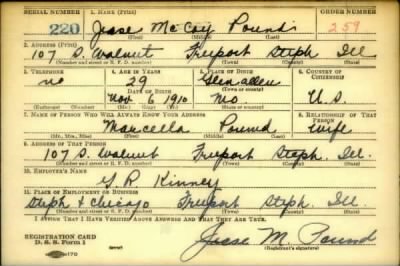 SERIAL NUMBER 1. NAME (Print) ORDER NUMBER
220 Jesse McCoy Pound 259
(First) (Middle) (Last)
2. ADDRESS (Print)
107 S. Walnut Freeport Steph Ill
(Number and street or R. F. D. number) (Town) (County) (State)
3. TELEPHONE 4. AGE IN YEARS 5. PLACE OF BIRTH 6. COUNTRY OF CITIZENSHIP
no 29 Glenallen
DATE OF BIRTH (Town or county)
Nov 6 1910 Mo U.S.
(Mo.) (Day) (Yr.) (State or country)
7. NAME OF PERSON WHO WILL ALWAYS KNOW YOUR ADDRESS 8. RELATIONSHIP OF THAT PERSON
Marcella Pound wife
(Mr., Mrs., Miss) (First) (Middle) (Last)
9. ADDRESS OF THAT PERSON
107 S. Walnut Freeport Steph. Ill.
(Number and street or R. F. D. number) (Town) (County) (State)
10. EMPLOYER'S NAME
G R Kinney
11. PLACE OF EMPLOYMENT OR BUSINESS
Steph & Chicago Freeport Steph. Ill.
(Number and street or R. F. D. number) (Town) (County) (State)
I AFFIRM THAT I HAVE VERIFIED ABOVE ANSWERS AND THAT THEY ARE TRUE.
REGISTRATION CARD
D. S. S. Form 1 Jesse M. Pound
(Registrant's signature)